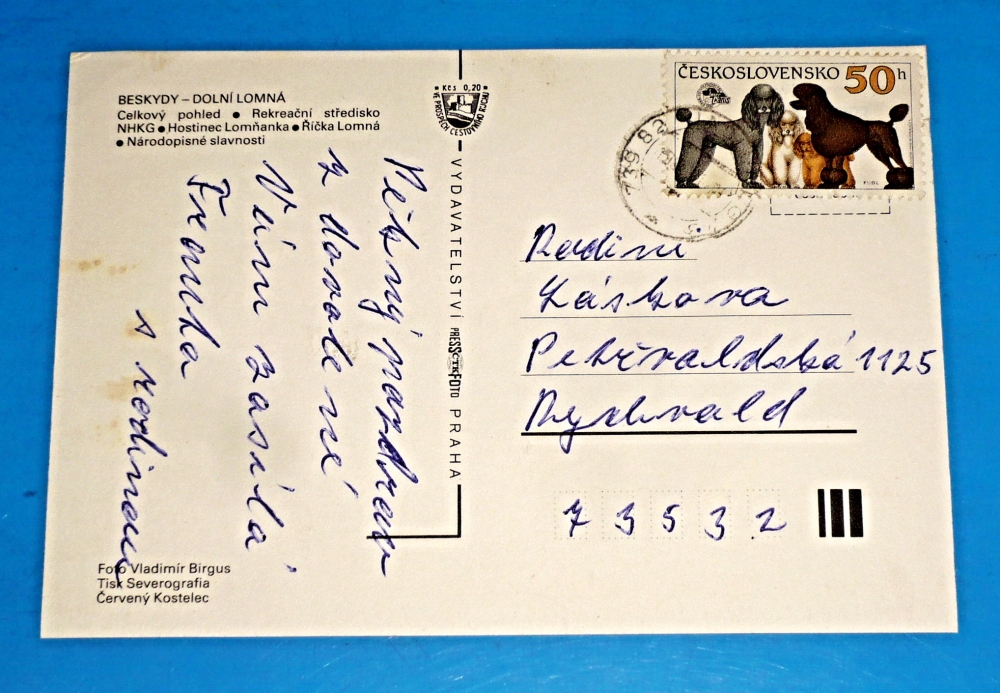 BESKYDY – DOLNÍ LOMNÁ
Celkový pohled ● Rekreační středisko
NHKG ● Hostinec Lomňanka ● Říčka Lomná
● Národopisné slavnosti
Pěkný pozdrav
z dovolené
Vám zasílá
Franta
s rodinou
Foto Vladimír Birgus
Tisk Severografia
Červený Kostelec
Kčs 0,20
VE PROSPĚCH CESTOVNÍHO RUCHU
VYDAVATELSTVÍ PRESSFOTO PRAHA
ČESKOSLOVENSKO 50h
739 82
Rodina
Petřvaldská 1125
Rychvald
73532